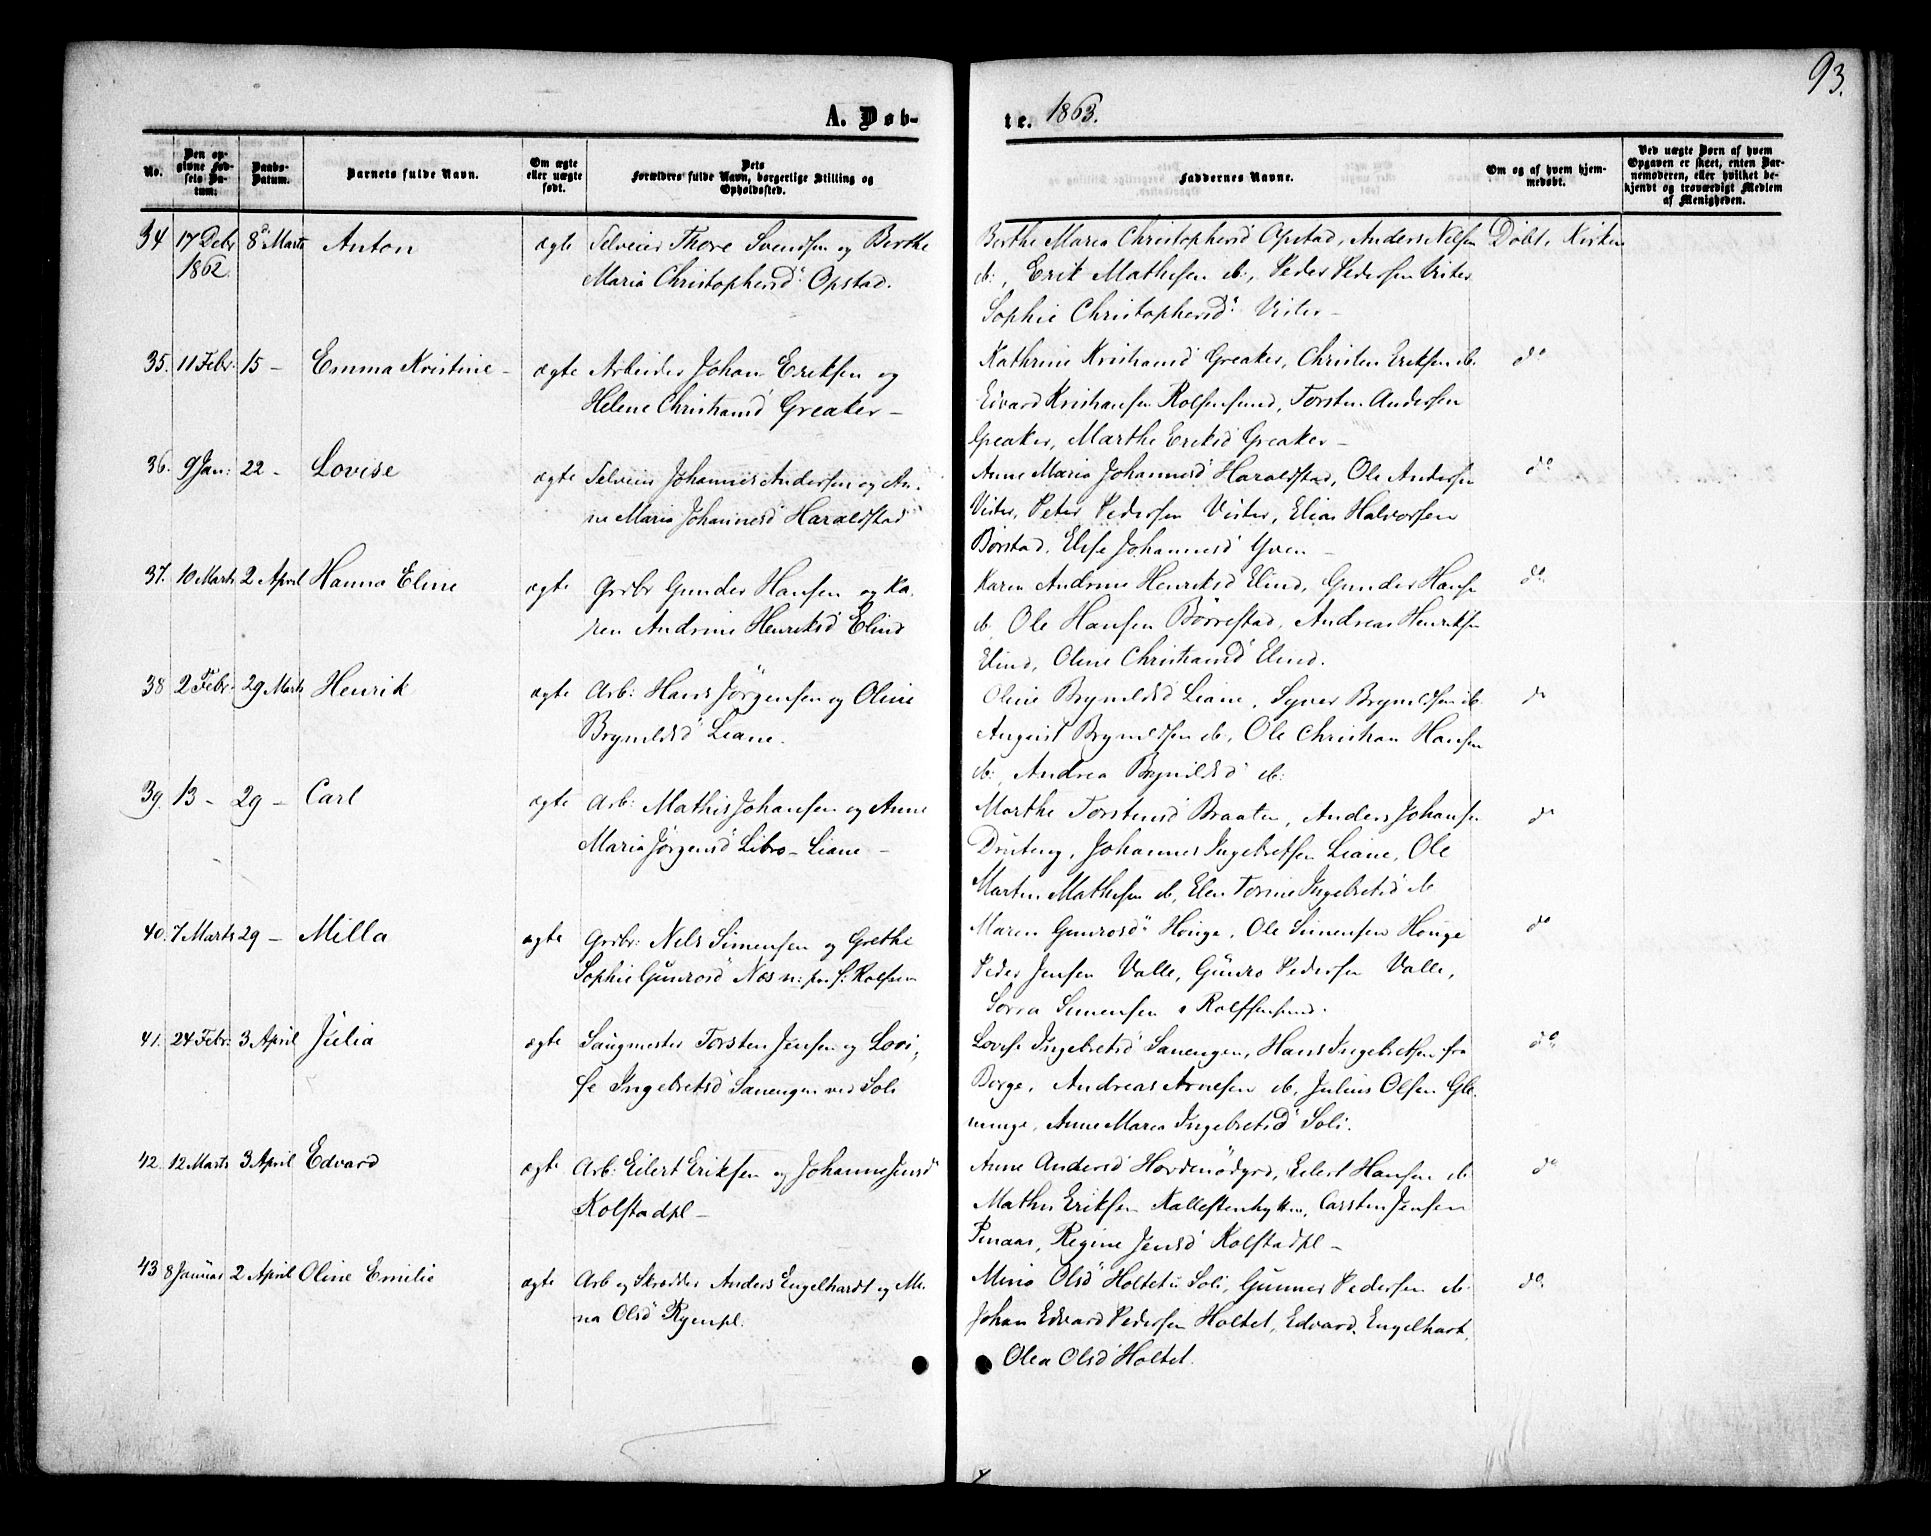 93.
A. Døb-
te. 1863.
No.
Den opgivne Fødsels Datum.
Daabs-Datum.
Barnets fulde Navn.
Om ægte eller uægte født.
Dets Forældres fulde Navn, borgerlige Stilling og Opholdssted.
Faddernes Navne.
Om og af hvem hjemmedøbt.
Ved uægte Børn af hvem Opgaven er skeet, enten Barnemoderen, eller hvilket bekjendt og troværdigt Medlem af Menigheden.
34 17 Decbr 8 Marts Anton ægte Selveier Thore Svendsen og Berthe
1862. Maria Christophersd Opstad.
Berthe Maria Christophersd Opstad, Anders Nilsen Døbt i Kirken
ib:, Erik Mathesen ib:, Peder Pedersen Vister
Sophie Christophersd Vister –
35. 11 Febr. 15 – Emma Kristine – ægte Arbeider Johan Eriksen og
Helene Christiansd Greaker –
Kathrine Kristiansd Greaker, Christen Eriksen ib. do
Edvard Kristiansen Rolfsøsund, Torsten Andersen
Greaker, Marthe Eriksd Greaker –
36. 9 Jan: 22 – Lovise ægte Selveier Johannes Andersen og An-
ne Maria Johannesd Haraldstad
Anne Maria Johannesd Haraldstad, Ole Andersen do
Vister, Peter Pedersen Vister, Elias Halvorsen
Børstad, Elise Johannesd Yven –
37. 10 Marts 2 April Hanna Eline ægte Grdbr Gunder Hansen og Ka-
ren Andrine Henriksd Elind
Karen Andrine Henriksd Elind, Gunder Hansen do
ib, Ole Hansen Børrestad, Andreas Henriksen
Elind, Oline Christiansd Elind.
38 2 Febr. 29 Marts Henrik ægte Arb: Hans Jörgensen og Oline
Brynildsd Liane.
Oline Brynildsd Liane, Syver Brynildsen ib. do
August Brynildsen ib, Ole Christian Hansen
ib: Andrea Brynildsd ib:
39. 13 – 29 – Carl ægte Arb: Mathis Johansen og Anne
Maria Jørgensd Libro – Liane –
Marthe Torstensd Braaten, Anders Johansen do
Johannes Ingebretsen Liane, Ole
Martin Mathisen ib, Elen Torine Ingebretsd ib
40. 7 Marts 29 – Milla ægte Grdbr: Nels Simensen og Grethe
Sophie Gunrosd Næs
Maren Gunrosd Houge, Ole Simensen Houge do
Peder Jensen Valle, Gunro Pedersen Valle,
Simensen Rolfsøsund.
41. 24 Febr. 3 April Julia ægte Saugmester Torsten Jensen og Lovi-
se Ingebretsd Sanengen ved Soli
Lovise Ingebretsd Sanengen, Hans Ingebretsen fra do
Borge, Andreas Arnesen ib, Julius Olsen Gle-
minge, Anne Maria Ingebretsd Soli.
42. 12 Marts 3 April Edvard ægte Arb: Eilert Eriksen og Johanne Jensd
Kolstadpl –
Anne Andersd Eilert Hansen ib do
Mathis Eriksen Carsten Jensen
Regine Jensd Kolstadpl –
43 8 Januar 2 April Oline Emilie ægte Arb og Skrædder Anders Engelhardt og Mi-
na Olsd Ryenpl.
Mina Olsd Holtet i Soli, Gunner Pedersen ib. do.
Johan Edvard Pedersen Holtet, Edvard Engelhart,
Olea Olsd Holtet.